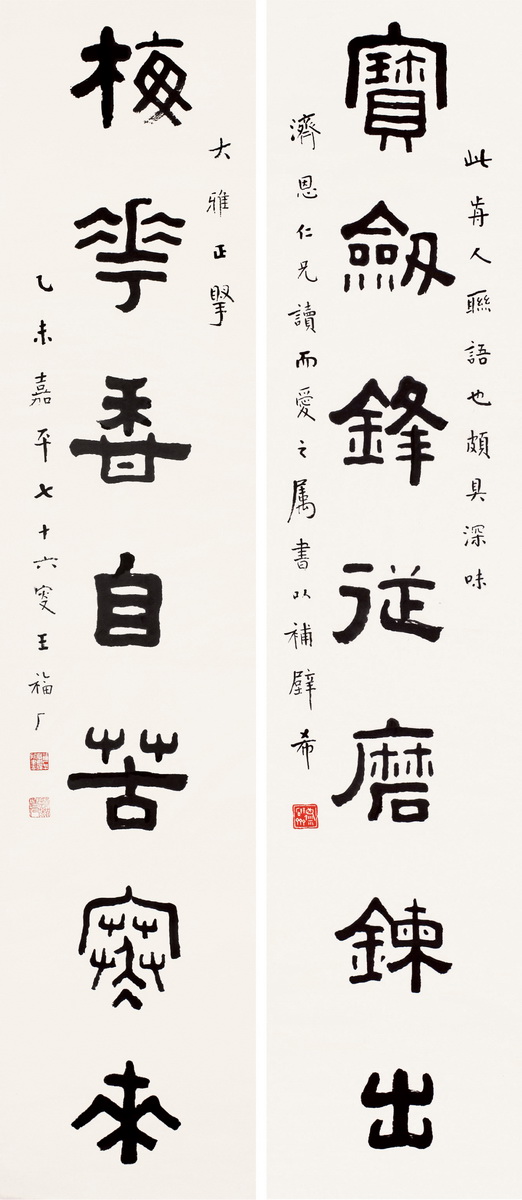 此歬人聯語也頗具深味
寶劔鋒從磨鍊出
濟恩仁兄讀而愛之属書以補壁希
大雅正掔
梅花香自苦寒來
乙未嘉平七十六叟王福厂